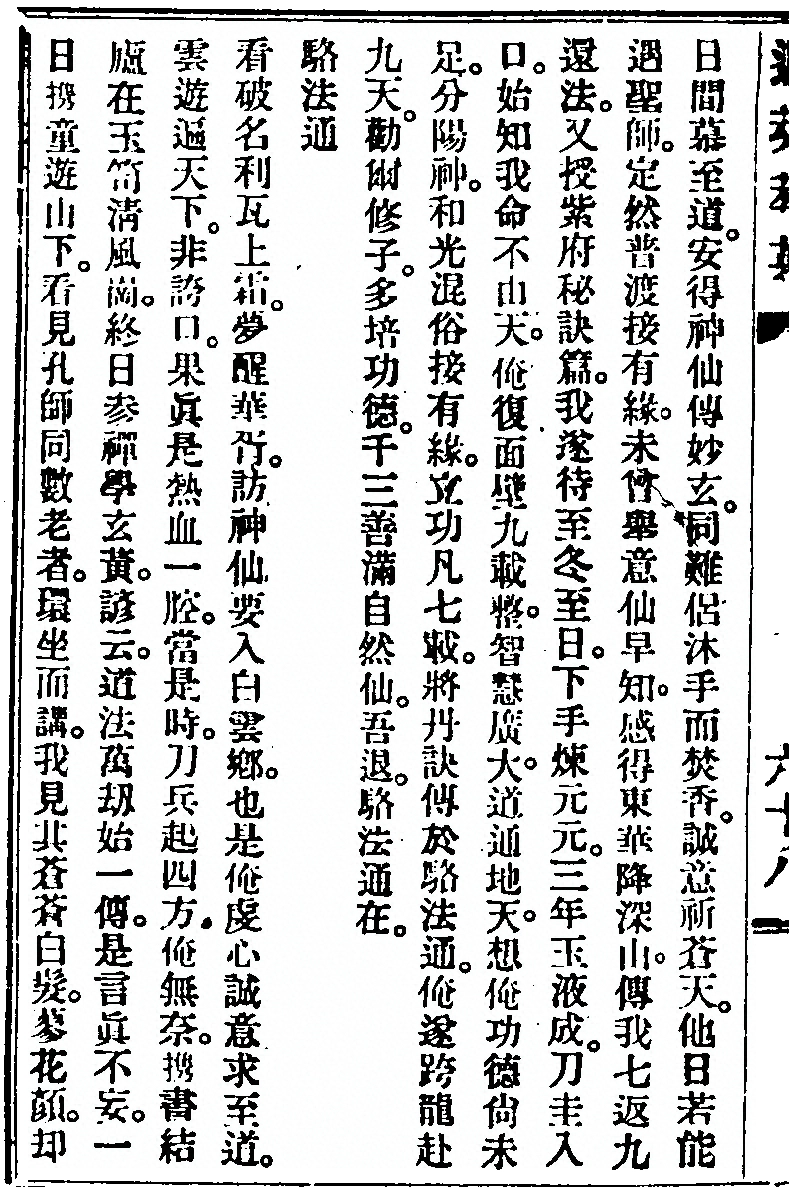 日間慕至道。安得神仙傳妙玄。同難侶沐手而焚香。誠意祈蒼天。他日若能
遇聖師。定然普渡接有緣。未曾舉意仙早知。感得東華降深山。傳我七返九
還法。又授紫府秘訣篇。我遂待至冬至日。下手煉元元。三年玉液成。刀圭入
口。始知我命不由天。俺復面壁九載。整智慧廣大。道通地天。想俺功德尙未
足。分陽神。和光混俗接有緣。立功凡七載。將丹訣傳於駱法通。俺遂跨龍赴
九天。勸爾修子。多培功德。千三善滿自然仙。吾退。駱法通在。
駱法通
看破名利瓦上霜。夢醒華胥。訪神仙要入白雲鄉。也是俺虔心誠意求至道。
雲遊遍天下。非誇口。果眞是熱血一腔。當是時。刀兵起四方。俺無奈。携書結
廬在玉笥淸風崗。終日參禪學玄黃。諺云。道法萬刼始一傳。是言眞不妄。一
日携童遊山下。看見孔師同數老者。環坐而講。我見其蒼蒼白髮。花顏。却
六十八